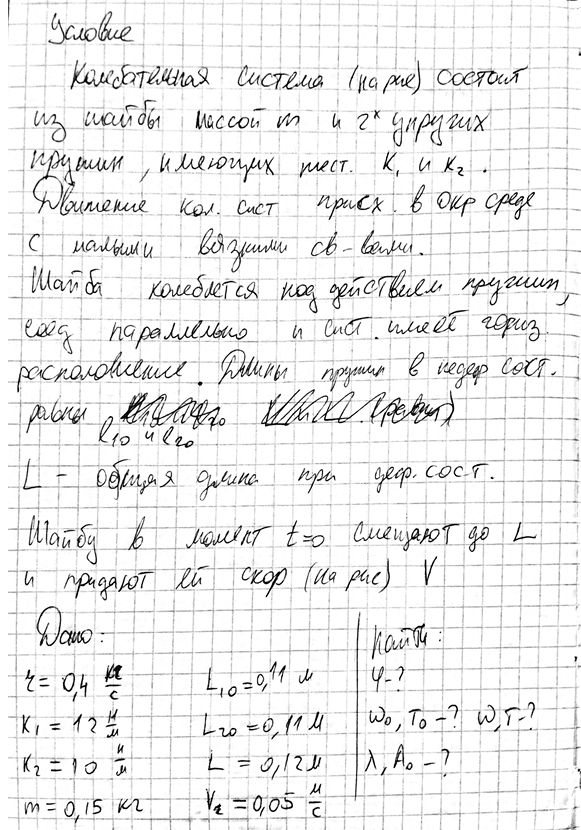 Условие
Колебательная система (на рис) состоит
из шайбы массой m и 2ˣ упругих
пружин, имеющих жест. K₁ и K₂.
Движение кол. сист присх. в окр среде
с малыми вязкими св-вами.
Шайба колеблется под действием пружин,
соед параллельно и сист. имеет гориз.
расположение. Длины пружин в недеф сост.
равны
l₁₀ и l₂₀
L - общая длина при деф. сост.
Шайбу в момент t=0 смещают до L
и придают ей скор (на рис) V
Дано:
r = 0,4 кг/с
K₁ = 12 н/м
K₂ = 10 н/м
m = 0,15 кг
L₁₀ = 0,11 м
L₂₀ = 0,11 м
L = 0,12 м
V₂ = 0,05 м/с
Найти:
φ-?
ω₀, T₀ -? ω, T-?
λ, A₀ -?